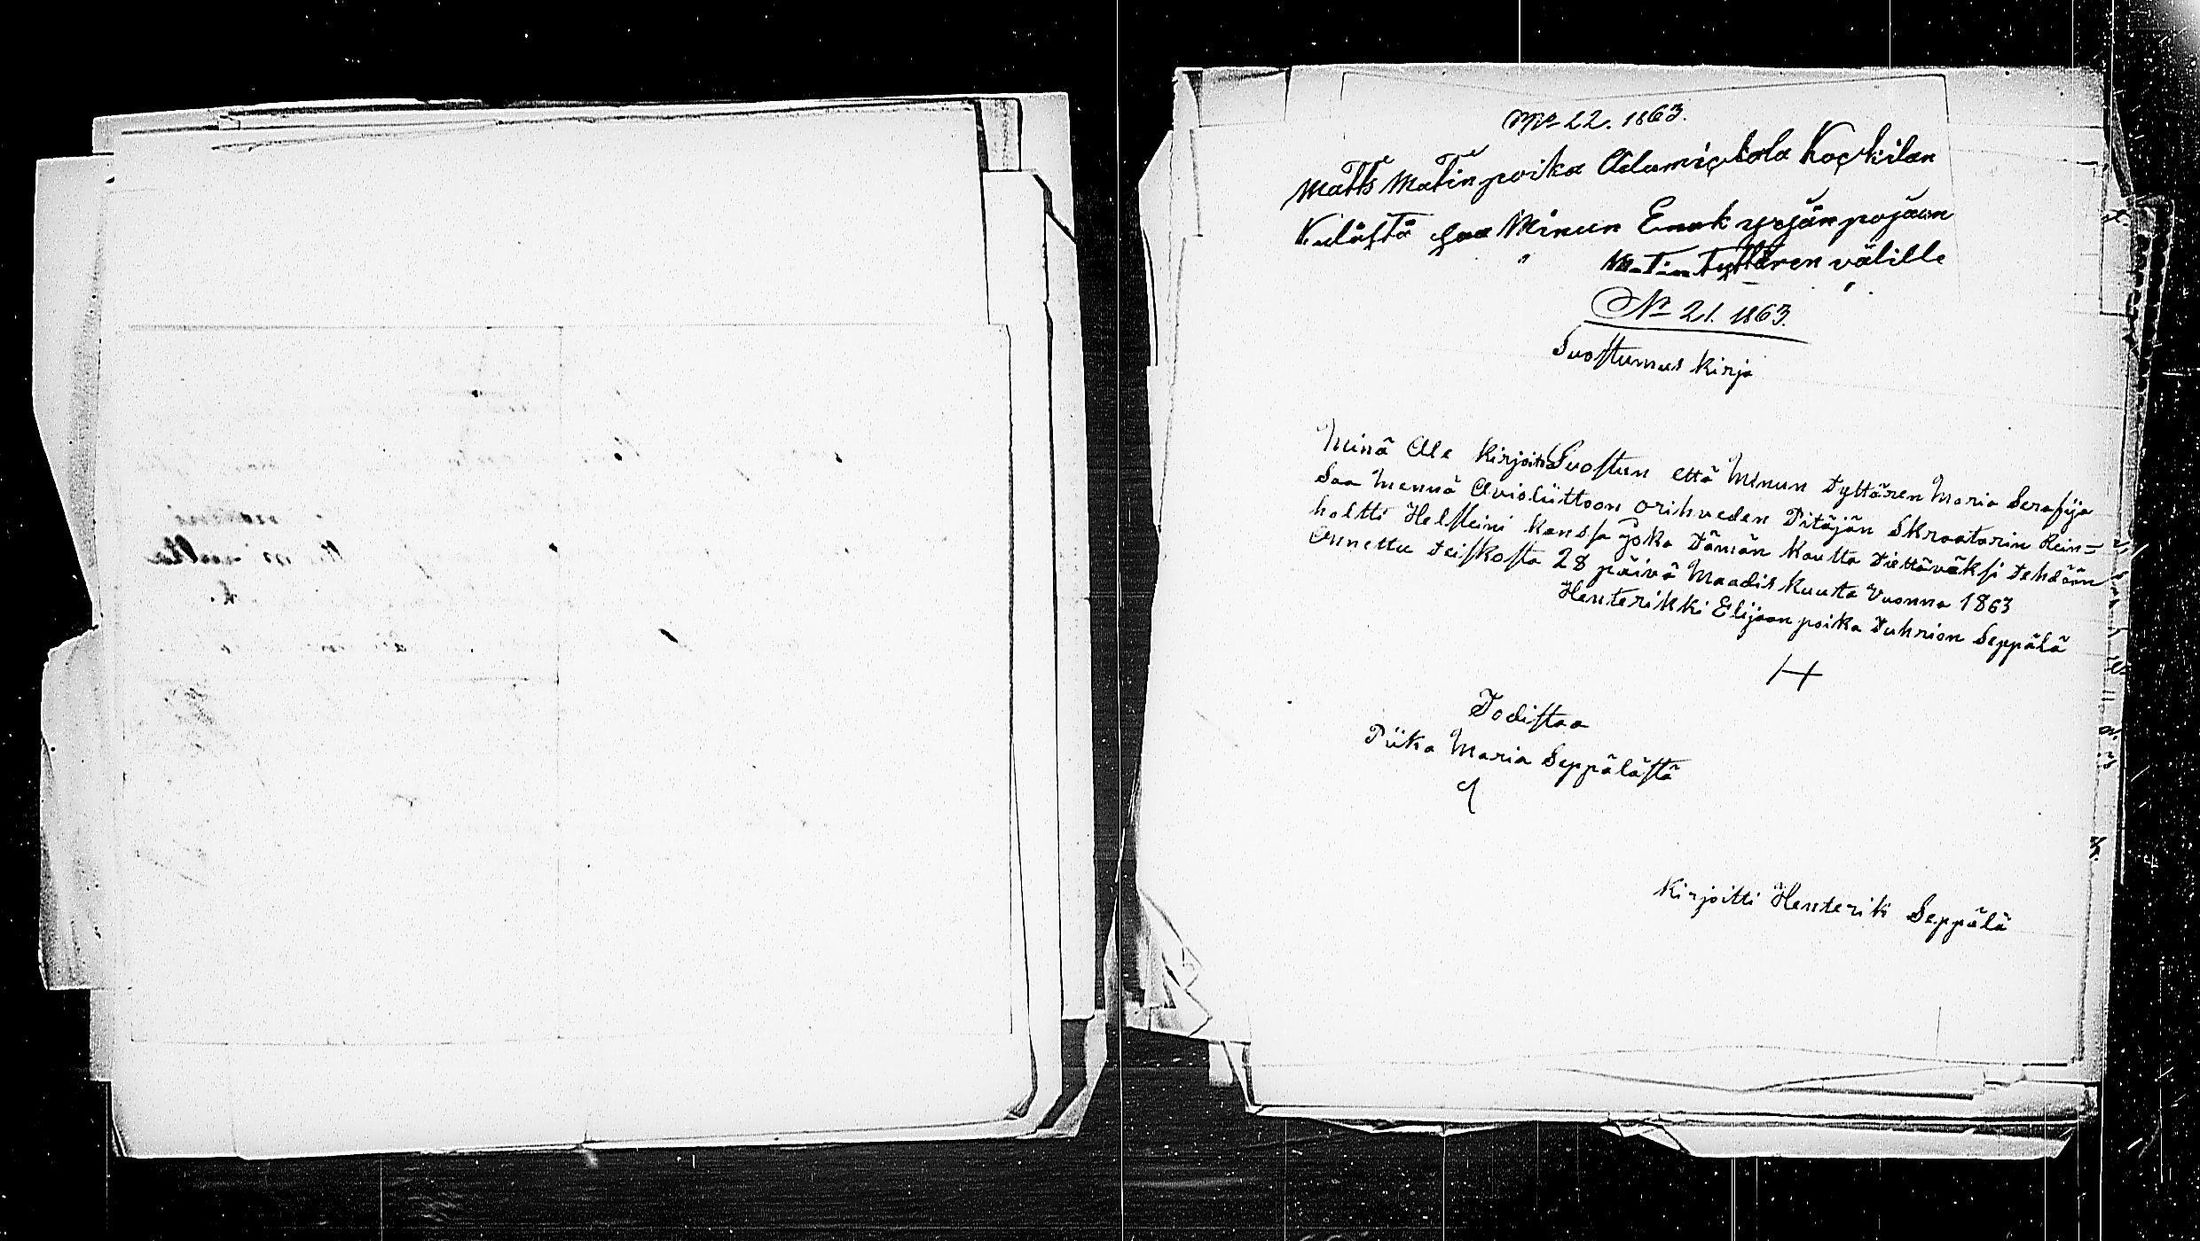 No 22. 1863.
Matts Matinpoika Koskilan
Kulästä saa Minun Enok yrjänpojaan
Matintyttären välille
No 21. 1863.
Suostumus kirja
Minä Ale kirjoitta Suostun että Minun Tyttären Maria Serafija
Saa Mennä Avioliittoon orihveden Pitäjän Skraatarin Rein=
holtti Helsteini kanssa joka Tämän kautta Tiettäväksi Tehdään
Annettu Teiskosta 28 päivä Maadiskuusta Vuonna 1863
Henterikki Elijaan poika Tuhrion Seppälä
Todistaa
Piika Maria Seppälästä
Kirjoitti Henterik Seppälä